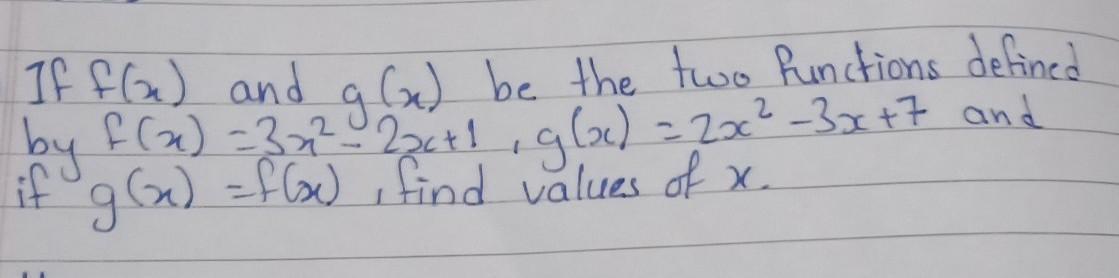 If f(x) and g(x) be the two functions defined
by f(x) = 3x² - 2x+1 , g(x) = 2x² - 3x + 7 and
if g(x) = f(x) , find values of x.